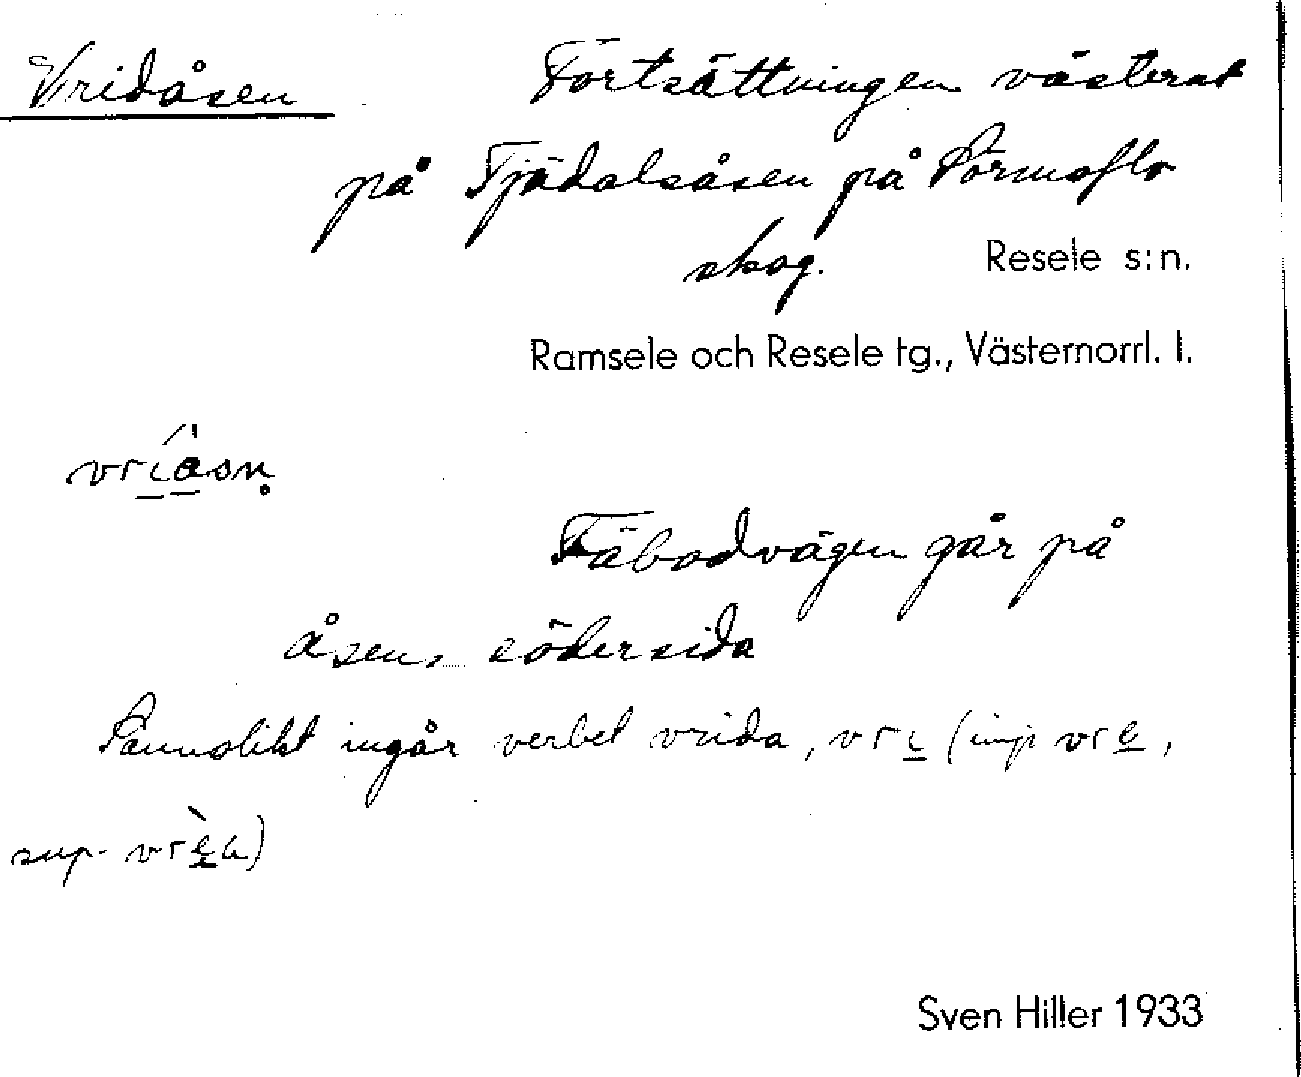 Vridåsen Fortsättningen västerut
på Tjädalsåsen på Sörmoflo
skog. Resele s:n.
Ramsele och Resele tg., Västernorrl. l.
vríåsn̥
Fäbodvägen går på
åsens södersida
Sannolikt ingår verbet vrida, vri (imp vre,
sup. vrèa)
Sven Hiller 1933